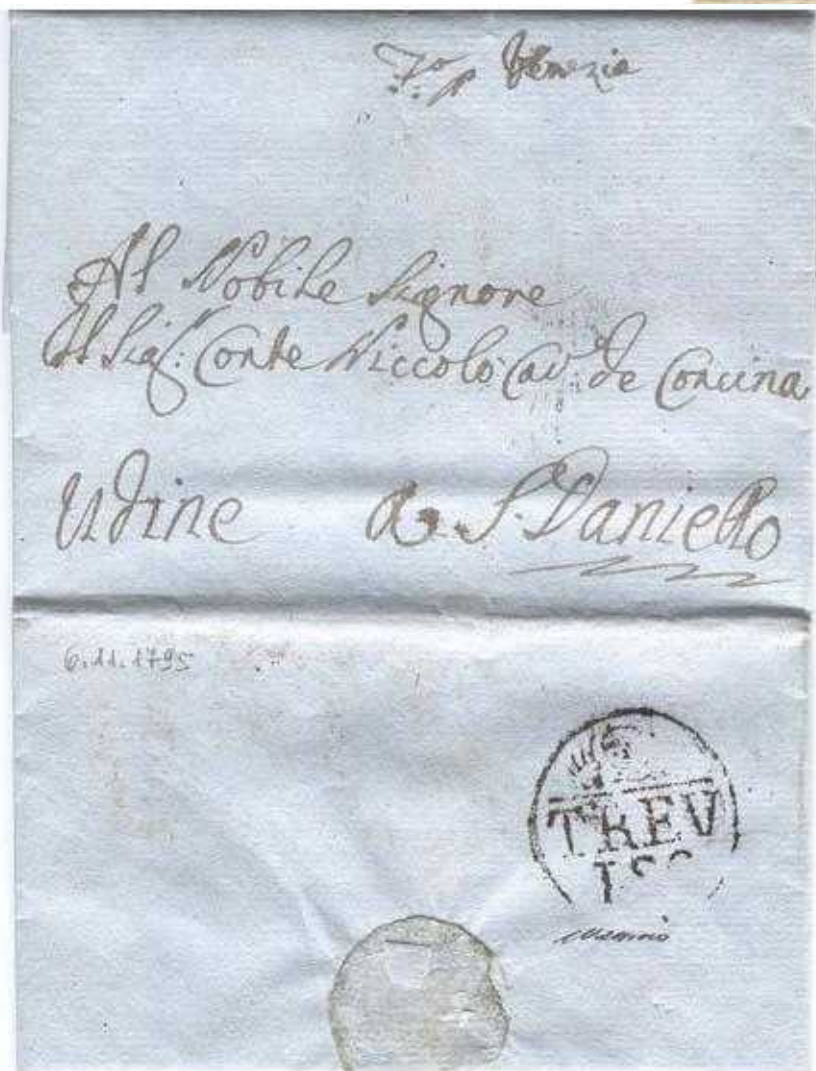 p Venezia
Al Nobile Signore
Il Sig.r Conte Niccolò Cav.e de Concina
Udine a S. Daniello
6.11.1795
TREV
ISO